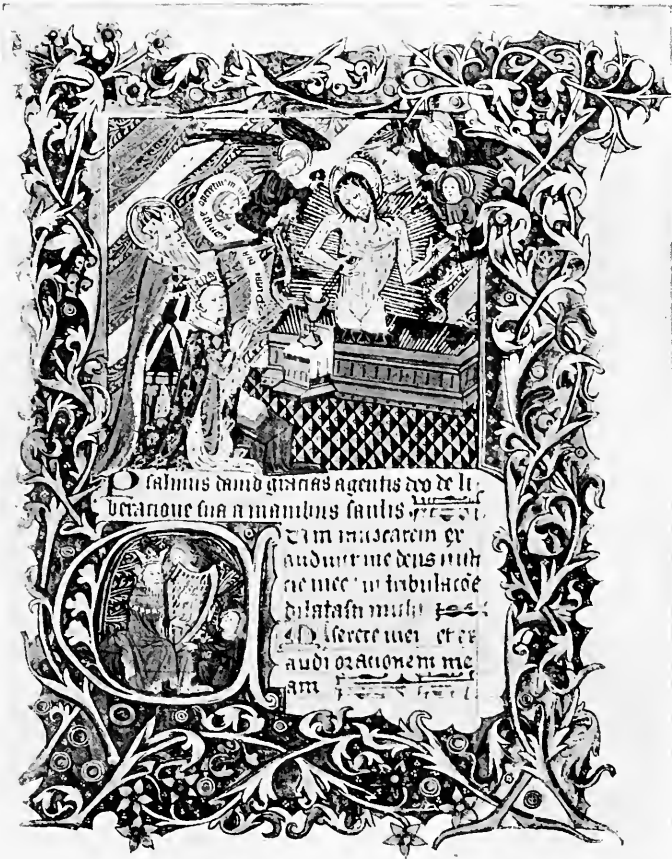 Psalmus dauid gracias agentis deo de li
beracione sua a manibus saulis
CUm inuocarem ex
audiuit me deus iusti
cie mee in tribulacōe
dilatasti michi
Miserere mei et ex
audi orationem me
am